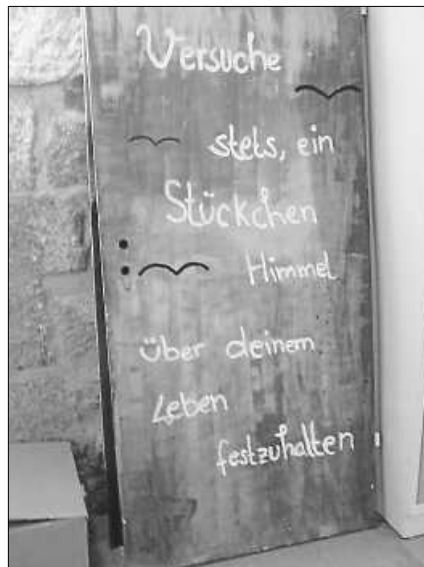 Versuche
stets, ein
Stückchen
Himmel
über deinem
Leben
festzuhalten